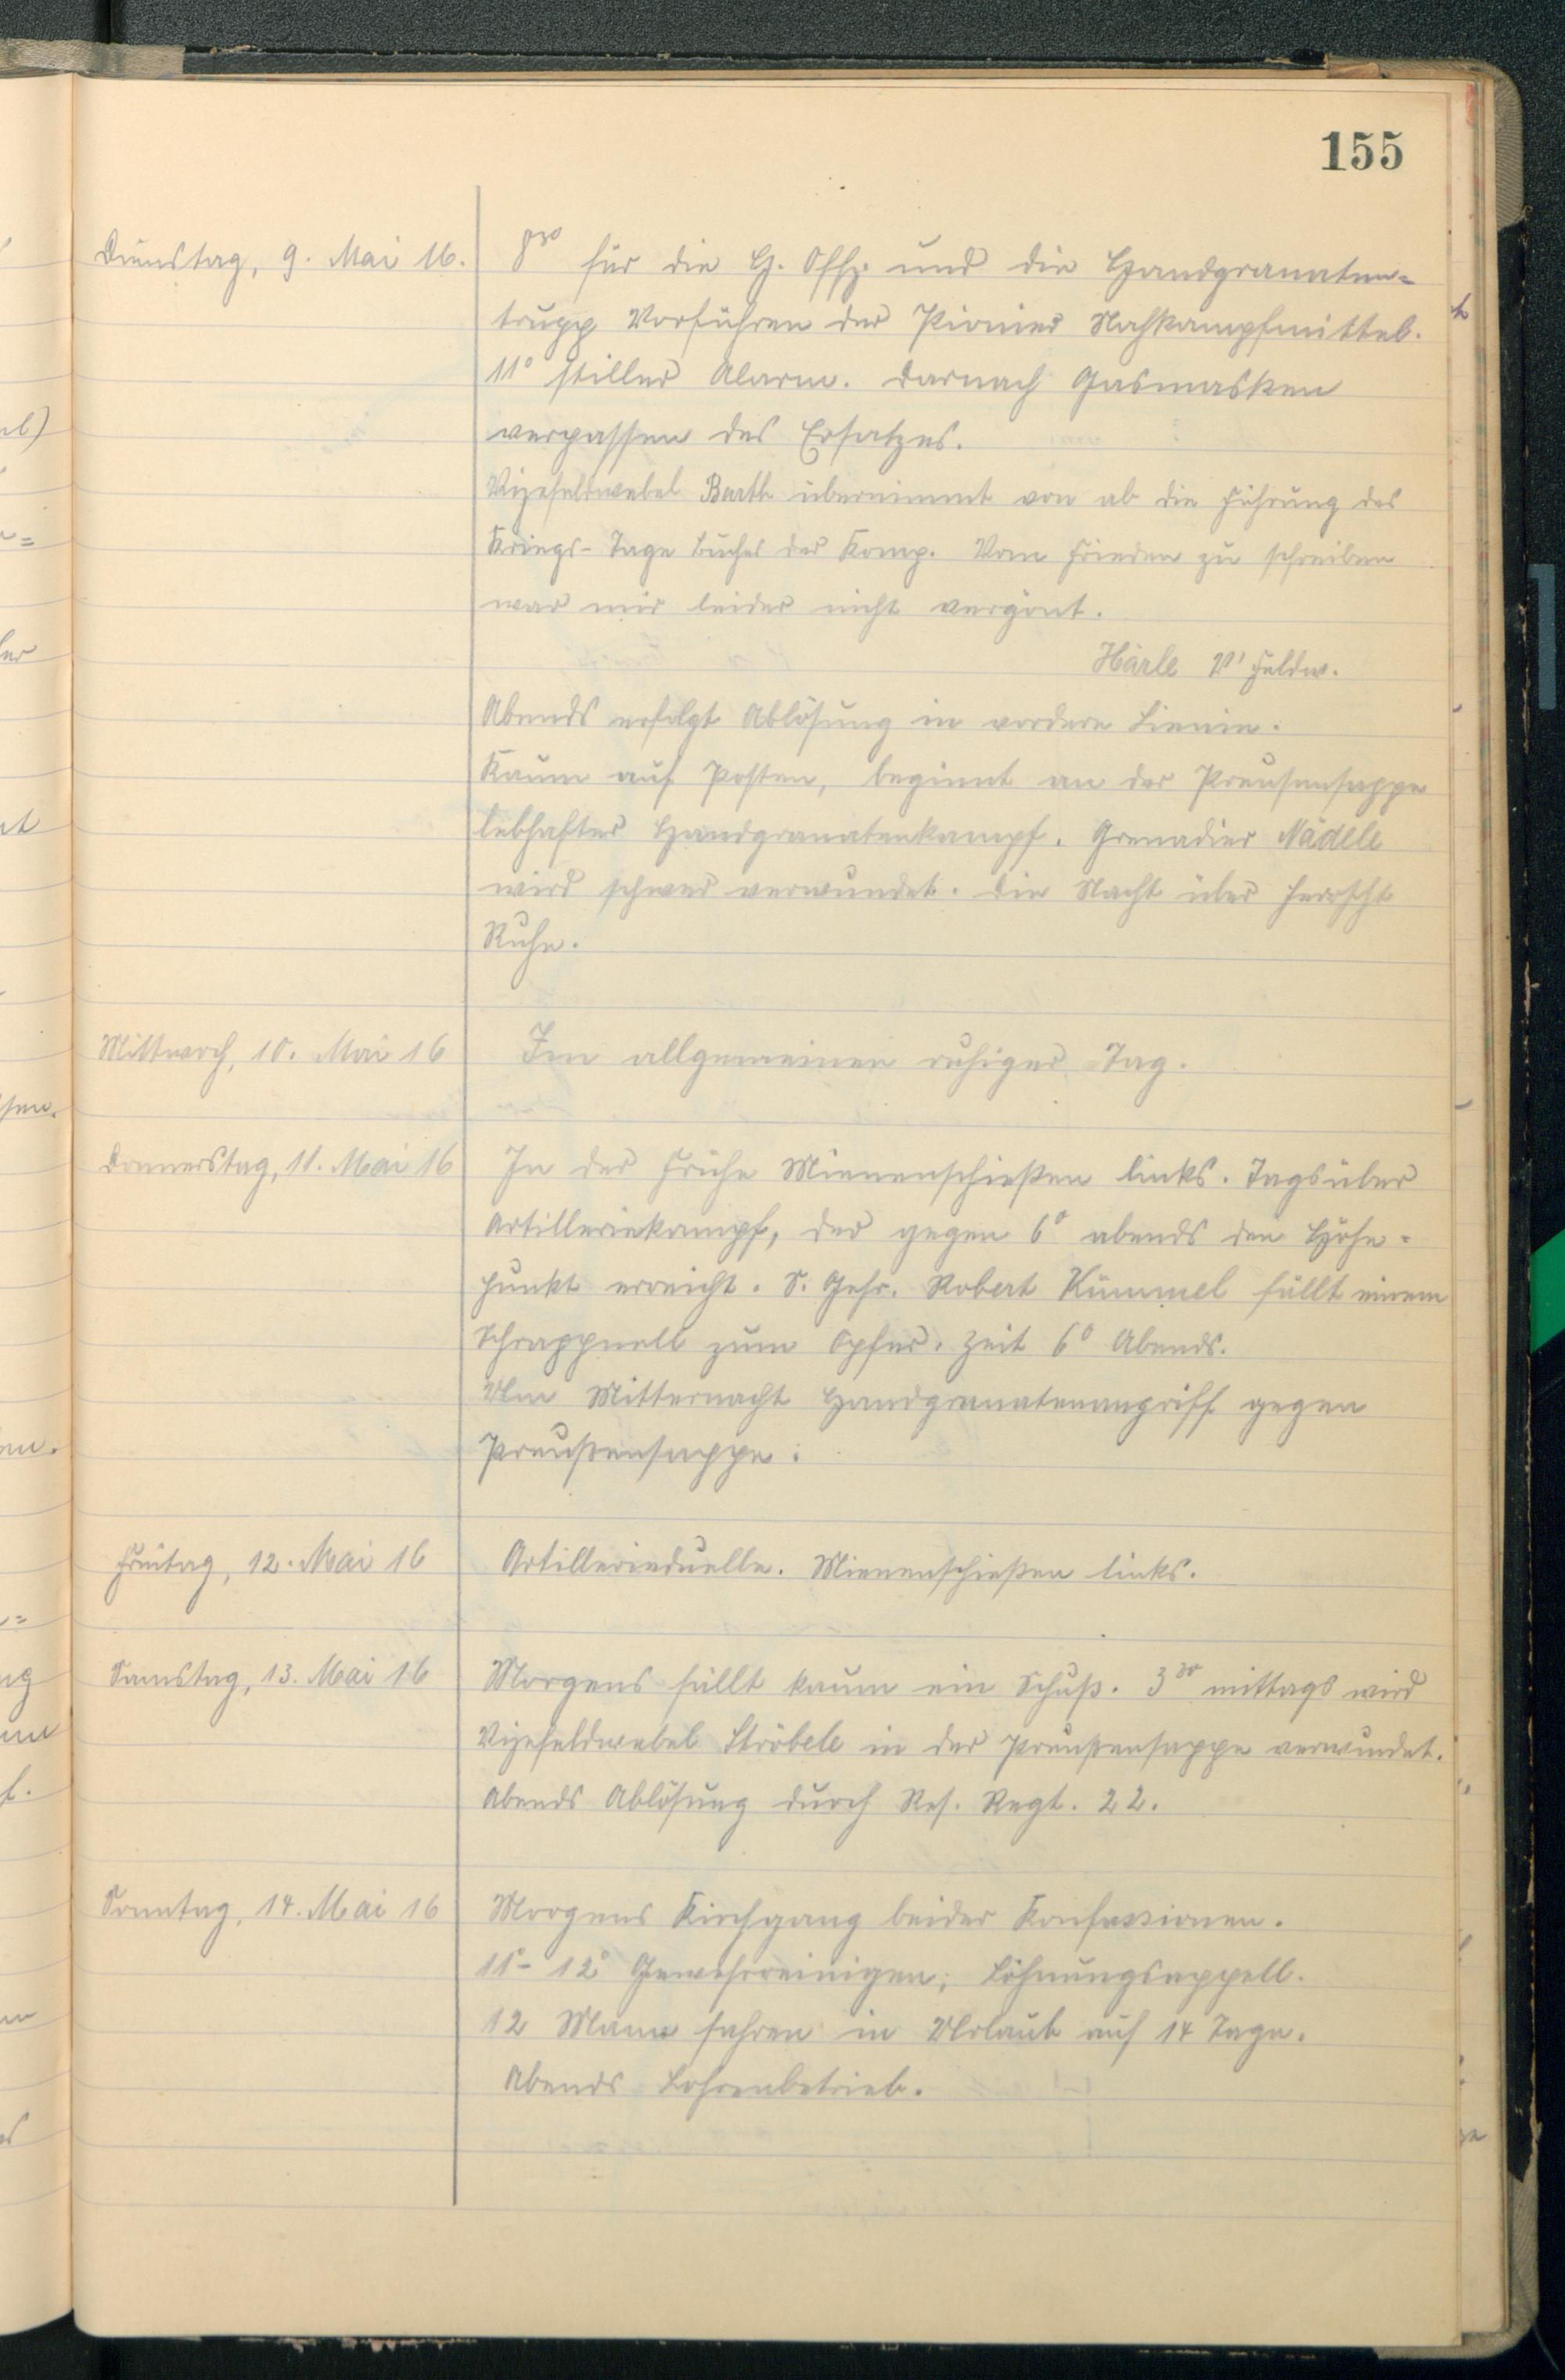 155
Dienstag, 9. Mai 16.
8³⁰ für die H. Offz. und die Handgranaten=
trupp Vorführen der Pionier Nahkampfmittel.
11⁰ stiller Alarm. Darnach Gasmasken
verpassen des Ersatzes.
Vizefeldwebel Barth übernimmt von ab die Führung des
Kriegs-Tage buches der Komp. Vom Frieden zu schreiben
war mir leider nicht vergönt.
Härle V' Feldw.
Abends erfolgt Ablösung in vordere Lienie.
Kaum auf Posten, beginnt an der Preusensappe
lebhafter Handgranatenkampf. Grenadier Nädele
wird schwer verwundet. Die Nacht über herrscht
Ruhe.
Mittwoch, 10. Mai 16
Im allgemeinen ruhiger Tag.
Donnerstag, 11. Mai 16
In der Frühe Mienenschießen links. Tagsüber
Artilleriekampf, der gegen 6⁰ abends den Höhe=
punkt erreicht. S. Gefr. Robert Kümmel fällt einem
Schrappnell zum Opfer. Zeit 6⁰ Abends.
Um Mitternacht Handgranatenangriff gegen
Preußensappe.
Freitag, 12. Mai 16
Artillerieduelle. Mienenschießen links.
Samstag, 13. Mai 16
Morgens fällt kaum ein Schuß. 3³⁰ mittags wird
Vizefeldwebel Ströbele in der Preußensappe verwundet.
Abends Ablösung durch Res. Regt. 22.
Sonntag, 14. Mai 16
Morgens Kirchgang beider Konfessionen.
11⁰- 12⁰ Gewehrreinigen; Löhnungsappell.
12 Mann fahren in Urlaub auf 14 Tage.
Abends Lohrenbetrieb.